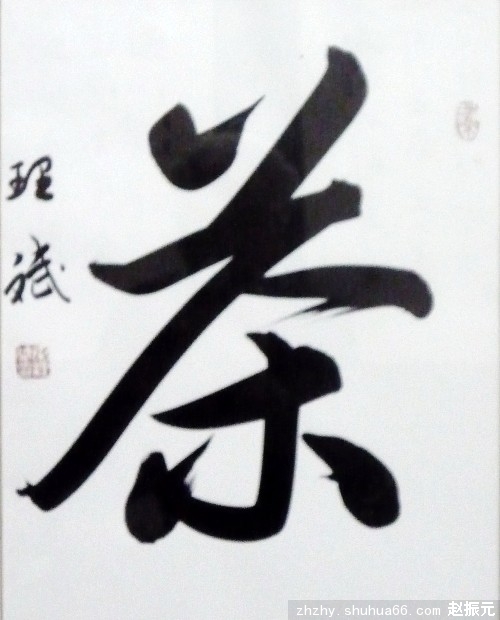 茶
理斌
zhzhy.shuhua66.com 赵振元